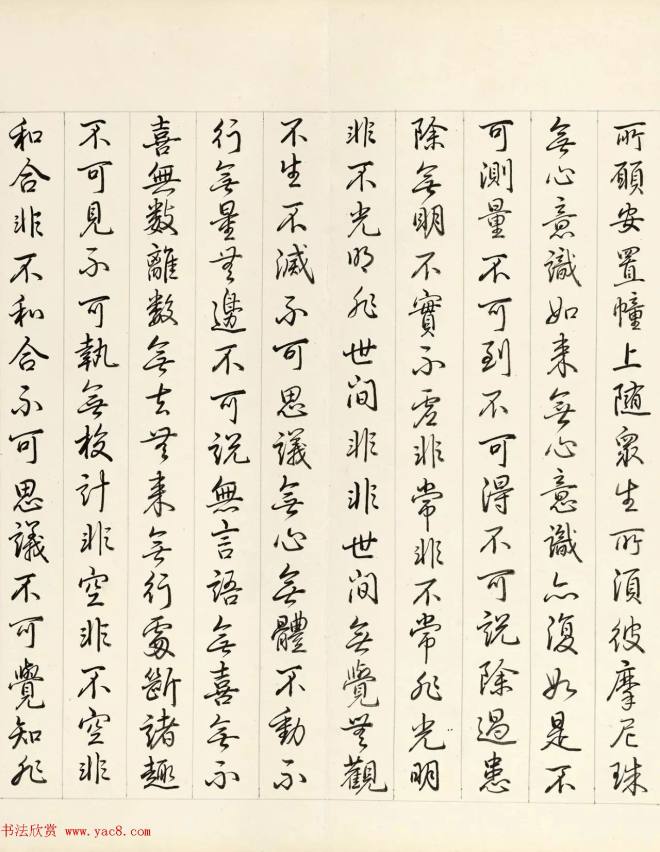 所願安置幢上随衆生所須彼摩尼珠
無心意識如来無心意識亦復如是不
可測量不可到不可得不可説除過患
除無明不實不虚非常非不常非光明
非不光明非世間非非世間無覺無觀
不生不滅不可思議無心無體不動不
行無量無邊不可説無言語無喜無不
喜無数離数無去無来無行處斷諸趣
不可見不可執無校計非空非不空非
和合非不和合不可思議不可覺知非
书法欣赏 www.yac8.com